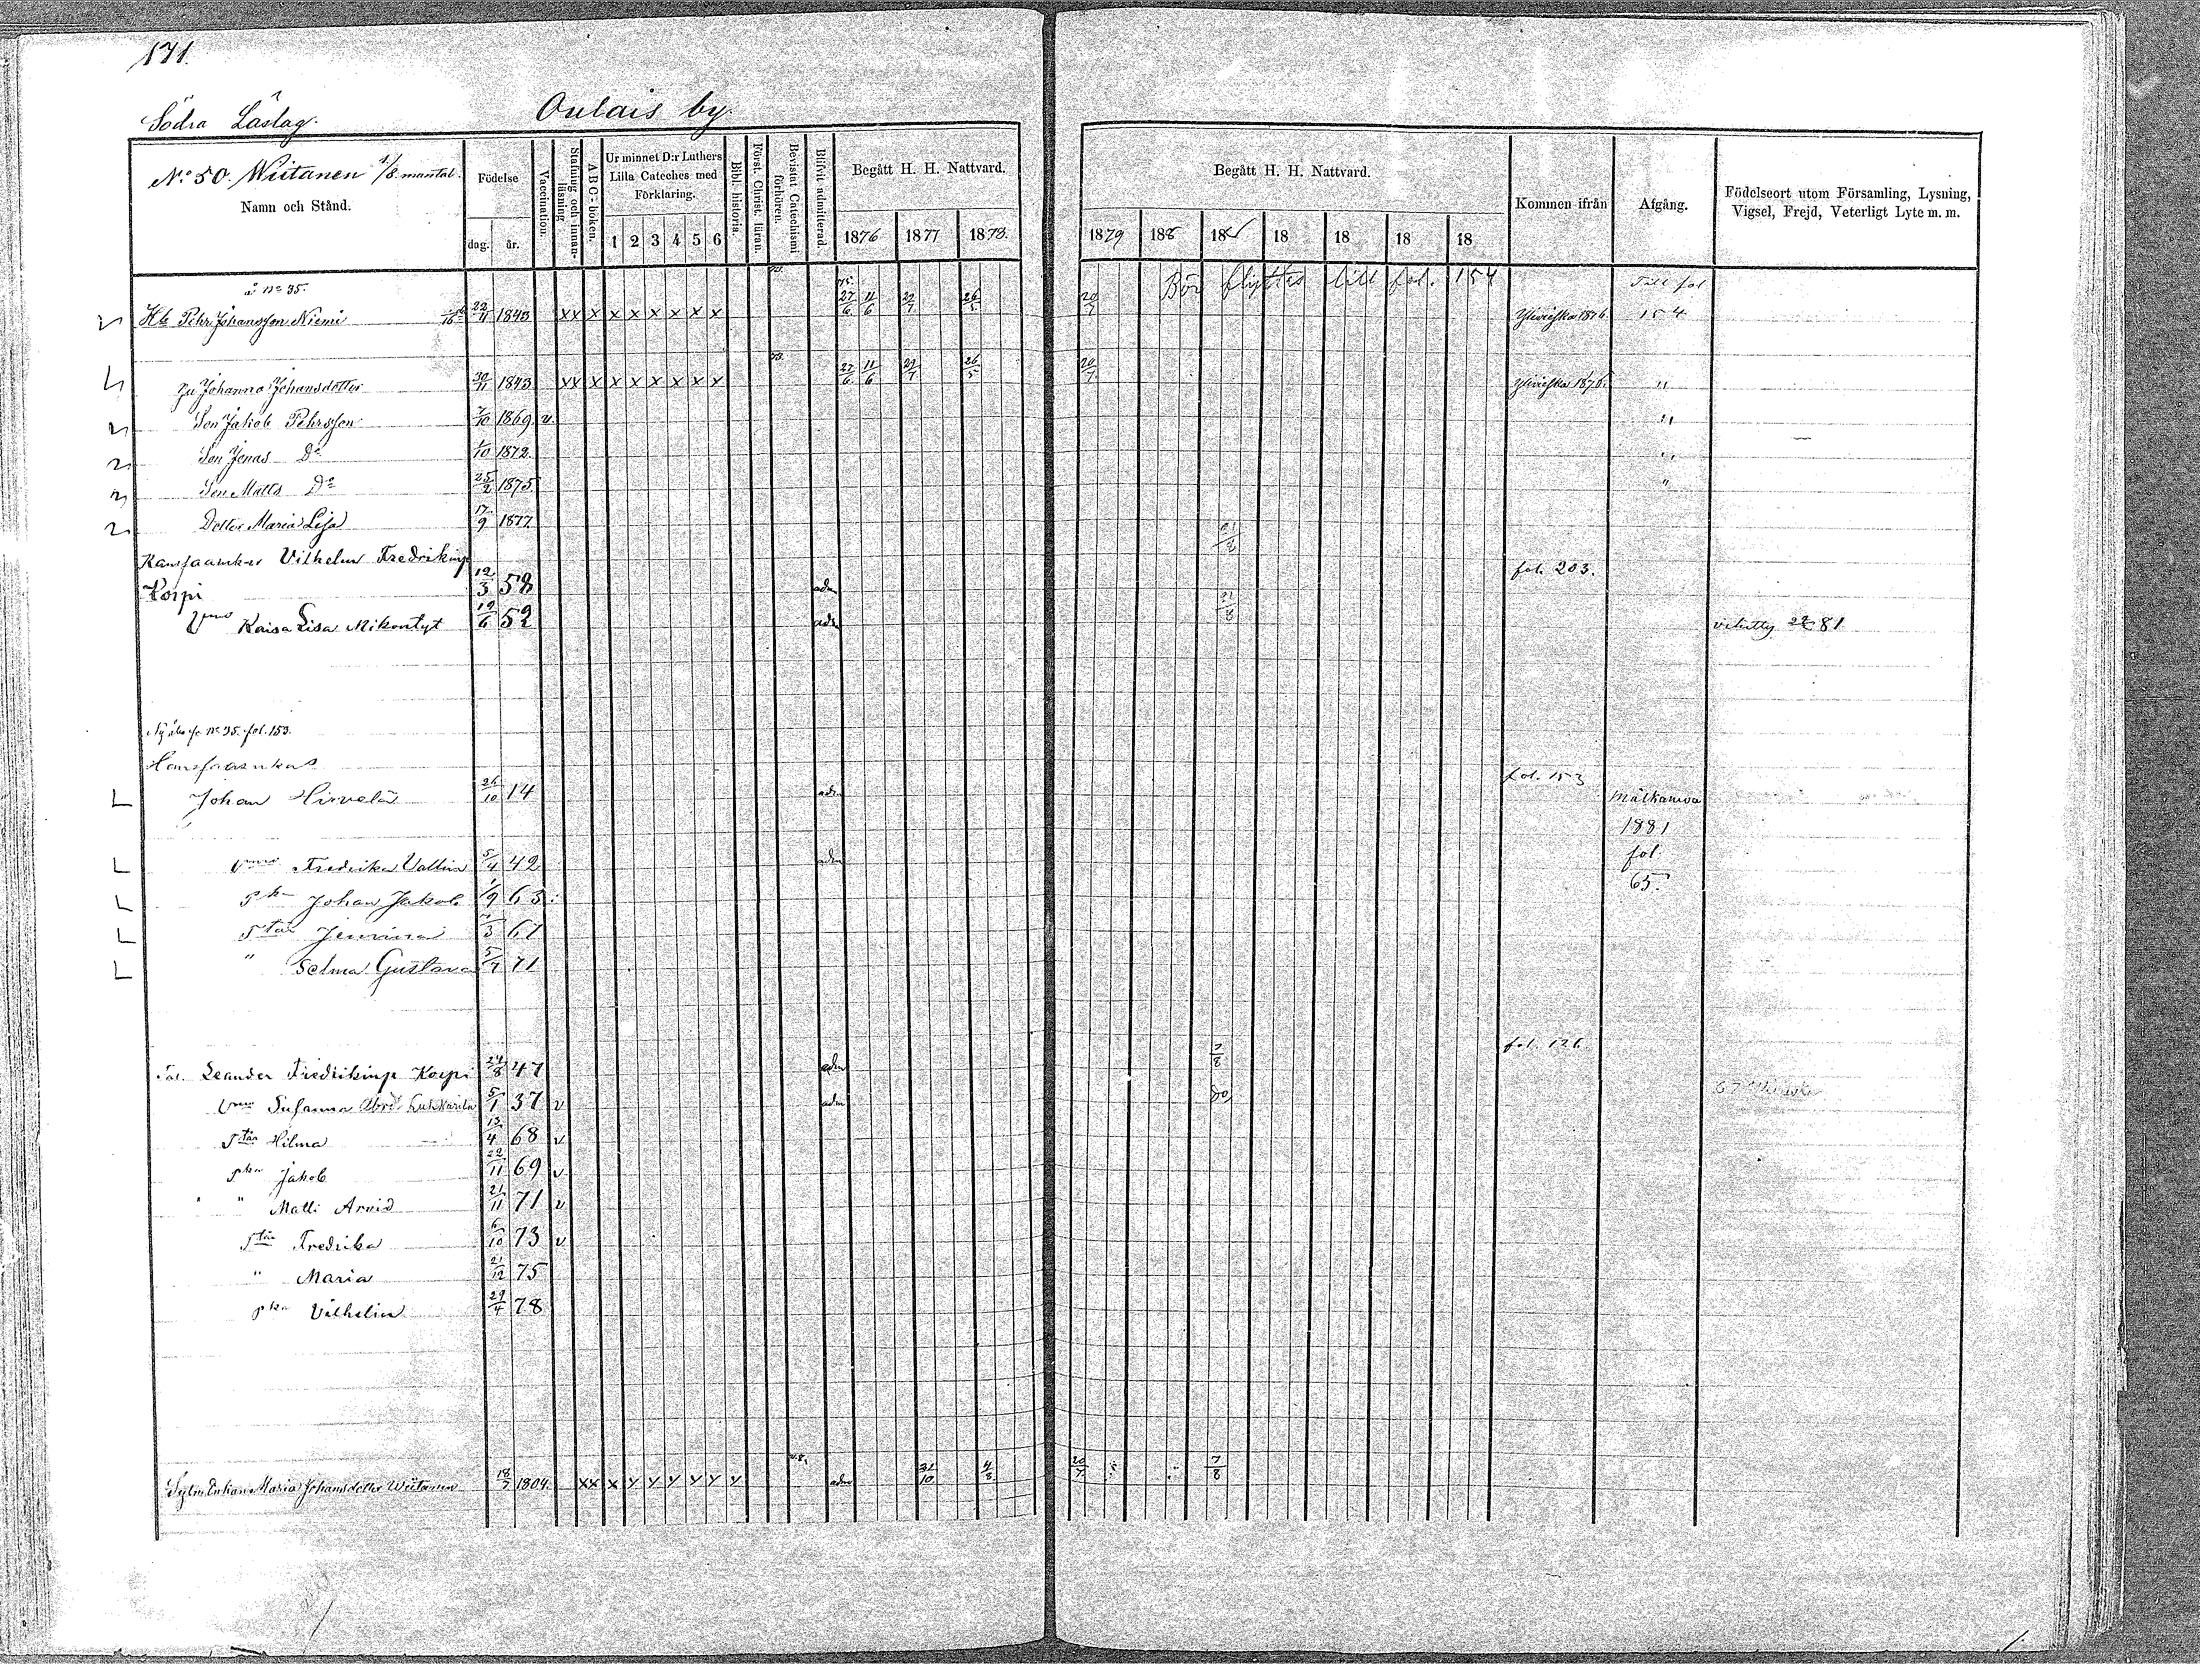 171.
Södra Läslag.
Oulais by.
No 50. Wiitanen 1/8 mantal.
Namn och Stånd.
Födelse
dag. år.
Vaccination.
Stafning och innanläsning
A B C-boken.
Ur minnet D:r Luthers Lilla Cateches med Förklaring.
1 2 3 4 5 6
Bibl. historia.
Först. Christ. läran.
Bevistat Catechismi förhören.
Blifvit admitterad.
Begått H. H. Nattvard.
1876 1877 1878.
Begått H. H. Nattvard.
1879 188 18 18 18 18 18
Kommen ifrån
Afgång.
Födelseort utom Församling, Lysning, Vigsel, Frejd, Veterligt Lyte m. m.
å no 35.
Bör flyttas till fol. 154
Till fol
Hb Pehr Johansson Niemi 22/11 1843 xx x x x x x x x 27/6 11/6 22/7 26/5 20/7 Ylivieska 1876. 154
Hu Johanna Johansdotter 30/11 1843 xx x x x x x x x 27/6 11/6 22/7 26/5 20/7 Ylivieska 1876. "
Son Jakob Pehrsson 7/10 1869 v. "
Son Jonas Do 1/10 1872 "
Son Matts Do 25/2 1875 "
Dotter Maria Lisa 17/9 1877
Vilhelm Fredrikinp
Korpi 12/3 58 adm fol. 203.
Vmo Kaisa Liisa Mikontyt 19/6 52 adm vihitty 81
no 35. fol. 153.
Johan Hirvelä 26/10 14 adm fol. 153
1881
Vmo Fredrika Vallin 5/4 42 adm fol.
65.
Pka Johan Jakob 1/9 63
Ttär 7/3 67
" Selma Gustava 5/7 71
Leander Fredrikinp Korpi 24/8 47 adm 7/8 fol. 126.
Vmo Susanna Abrd. 5/1 37 v adm do
Ttär Hilma 13/4 68 v
Pka Jakob 22/11 69 v
" Matti Arvid 21/11 71 v
Ttär Fredrika 6/10 73 v
" Maria 21/12 75
Pka Vilhelm 29/4 78
Enkan Maria Johansdotter Wiitanen 18/7 1804. xx x y y y y y y adm 31/10 4/8 20/7 7/8